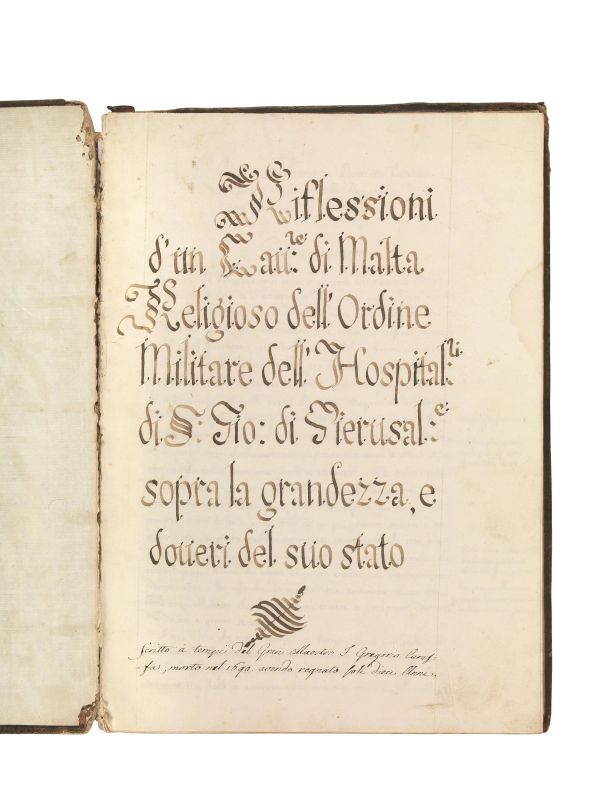 Riflessioni
d'un Cau:re di Malta
Religioso dell'Ordine
Militare dell'Hospital:li
di S: Gio: di Gierusal:e
sopra la grandezza, e
doueri del suo stato
Scritto à tempi del Gran Maestro F. Gregorio Caraf-
-fa, morto nel 1690. avendo regnato soli dieci Anni.